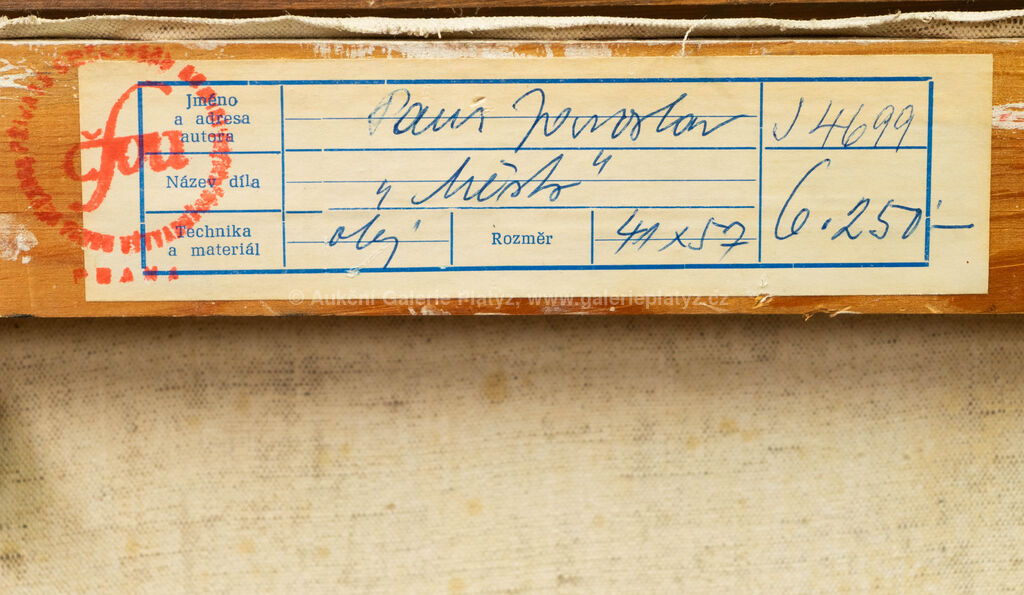 Jméno
a adresa
autora
Jaroslav
J 4699
Název díla
"Město"
Technika
a materiál
olej
Rozměr
41 x 57
6.250,—
čfvu
PRAHA
© Aukční Galerie Platýz, www.galerieplatyz.cz